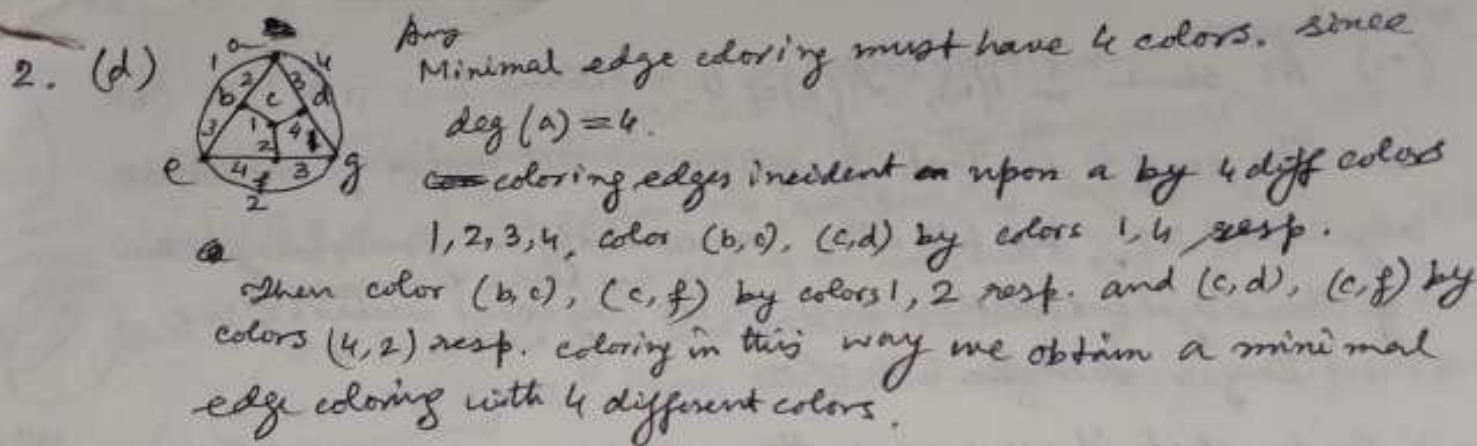 2. (d) Ans
Minimal edge coloring must have 4 colors. since
deg (a) = 4.
coloring edges incident upon a by 4 diff colors
1, 2, 3, 4, color (b, c), (c, d) by colors 1, 4 resp.
Then color (b, c), (c, f) by colors 1, 2 resp. and (c, d), (c, f) by
colors (4, 2) resp. coloring in this way we obtain a minimal
edge coloring with 4 different colors.
a
1 2 3 4
b c d
3 1 4 1
2
e 4 f 3 g
2